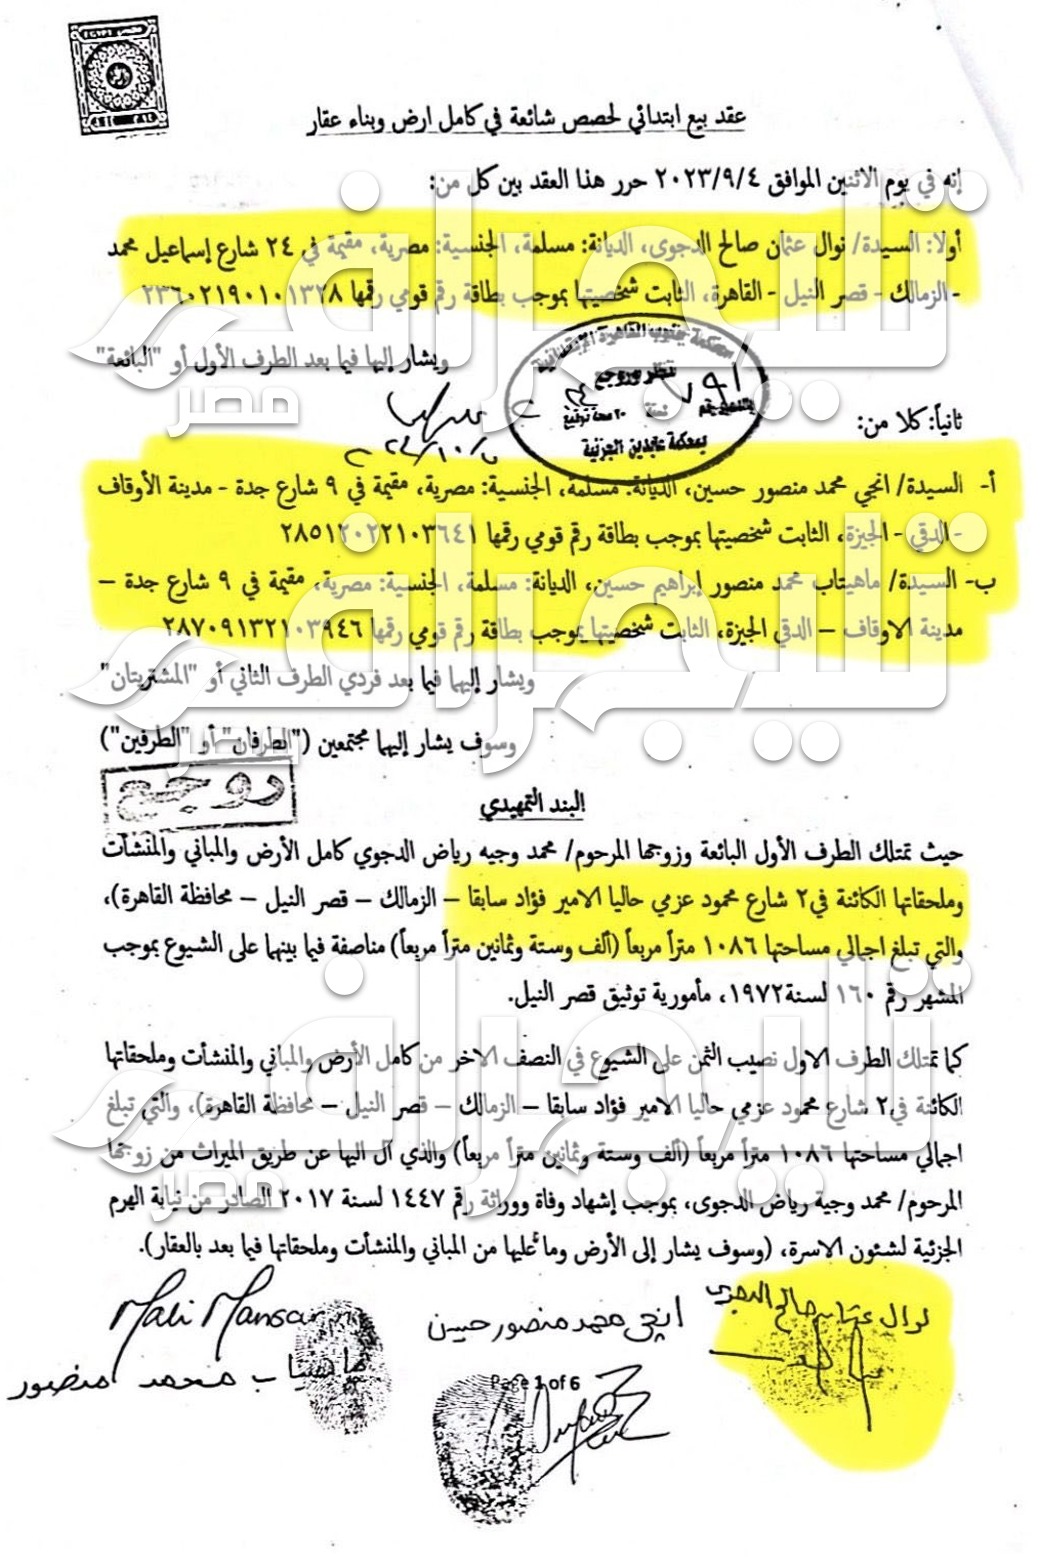 عقد بيع ابتدائي لحصص شائعة في كامل ارض وبناء عقار
إنه في يوم الاثنين الموافق ٢٠٢٣/٩/٤ حرر هذا العقد بين كل من:
أولا: السيدة/ نوال عثمان صالح الدجوى، الديانة: مسلمة، الجنسية: مصرية، مقيمة في ٢٤ شارع إسماعيل محمد
- الزمالك - قصر النيل - القاهرة، الثابت شخصيتها بموجب بطاقة رقم قومي رقمها ٢٣٦٠٢١٩٠١٠١٣٢٨
محكمة جنوب القاهرة الابتدائية
نظر وروجع
ويشار إليها فيما بعد الطرف الأول أو "البائعة"
بمحكمة عابدين الجزئية
ثانياً: كلا من:
أ- السيدة/ انجي محمد منصور حسين، الديانة: مسلمة، الجنسية: مصرية، مقيمة في ٩ شارع جدة - مدينة الأوقاف
- الدقي - الجيزة، الثابت شخصيتها بموجب بطاقة رقم قومي رقمها ٢٨٥١٢٠٢٢١٠٣٦٤١
ب- السيدة/ ماهيتاب محمد منصور إبراهيم حسين، الديانة: مسلمة، الجنسية: مصرية، مقيمة في ٩ شارع جدة –
مدينة الاوقاف – الدقي الجيزة، الثابت شخصيتها بموجب بطاقة رقم قومي رقمها ٢٨٧٠٩١٣٢١٠٣٩٤٦
ويشار إليها فيما بعد فردي الطرف الثاني أو "المشتريتان"
وسوف يشار إليها مجتمعين ("الطرفان" أو "الطرفين")
روجع
البند التمهيدي
حيث تمتلك الطرف الأول البائعة وزوجها المرحوم/ محمد وجيه رياض الدجوي كامل الأرض والمباني والمنشأت
وملحقاتها الكائنة في٢ شارع محمود عزمي حاليا الامير فؤاد سابقا – الزمالك – قصر النيل – محافظة القاهرة)،
والتي تبلغ اجمالي مساحتها ١٠٨٦ متراً مربعاً (ألف وستة وثمانين متراً مربعاً) مناصفة فيما بينهما على الشيوع بموجب
المشهر رقم ١٦٠ لسنة١٩٧٢، مأمورية توثيق قصر النيل.
كما تمتلك الطرف الاول نصيب الثمن على الشيوع في النصف الاخر من كامل الأرض والمباني والمنشأت وملحقاتها
الكائنة في٢ شارع محمود عزمي حاليا الامير فؤاد سابقا – الزمالك – قصر النيل – محافظة القاهرة)، والتي تبلغ
اجمالي مساحتها ١٠٨٦ متراً مربعاً (ألف وستة وثمانين متراً مربعاً) والذي آل اليها عن طريق الميراث من زوجها
المرحوم/ محمد وجية رياض الدجوى، بموجب إشهاد وفاة ووراثة رقم ١٤٤٧ لسنة ٢٠١٧ الصادر من نيابة الهرم
الجزئية لشئون الاسرة، (وسوف يشار إلى الأرض وما عليها من المباني والمنشأت وملحقاتها فيما بعد بالعقار).
نوال عثمان صالح الدجوى
انجى محمد منصور حسين
Mahi Mansour
ماهيتاب محمد منصور
Page 1 of 6
تليجراف
مصر
تليجراف
مصر
تليجراف
مصر